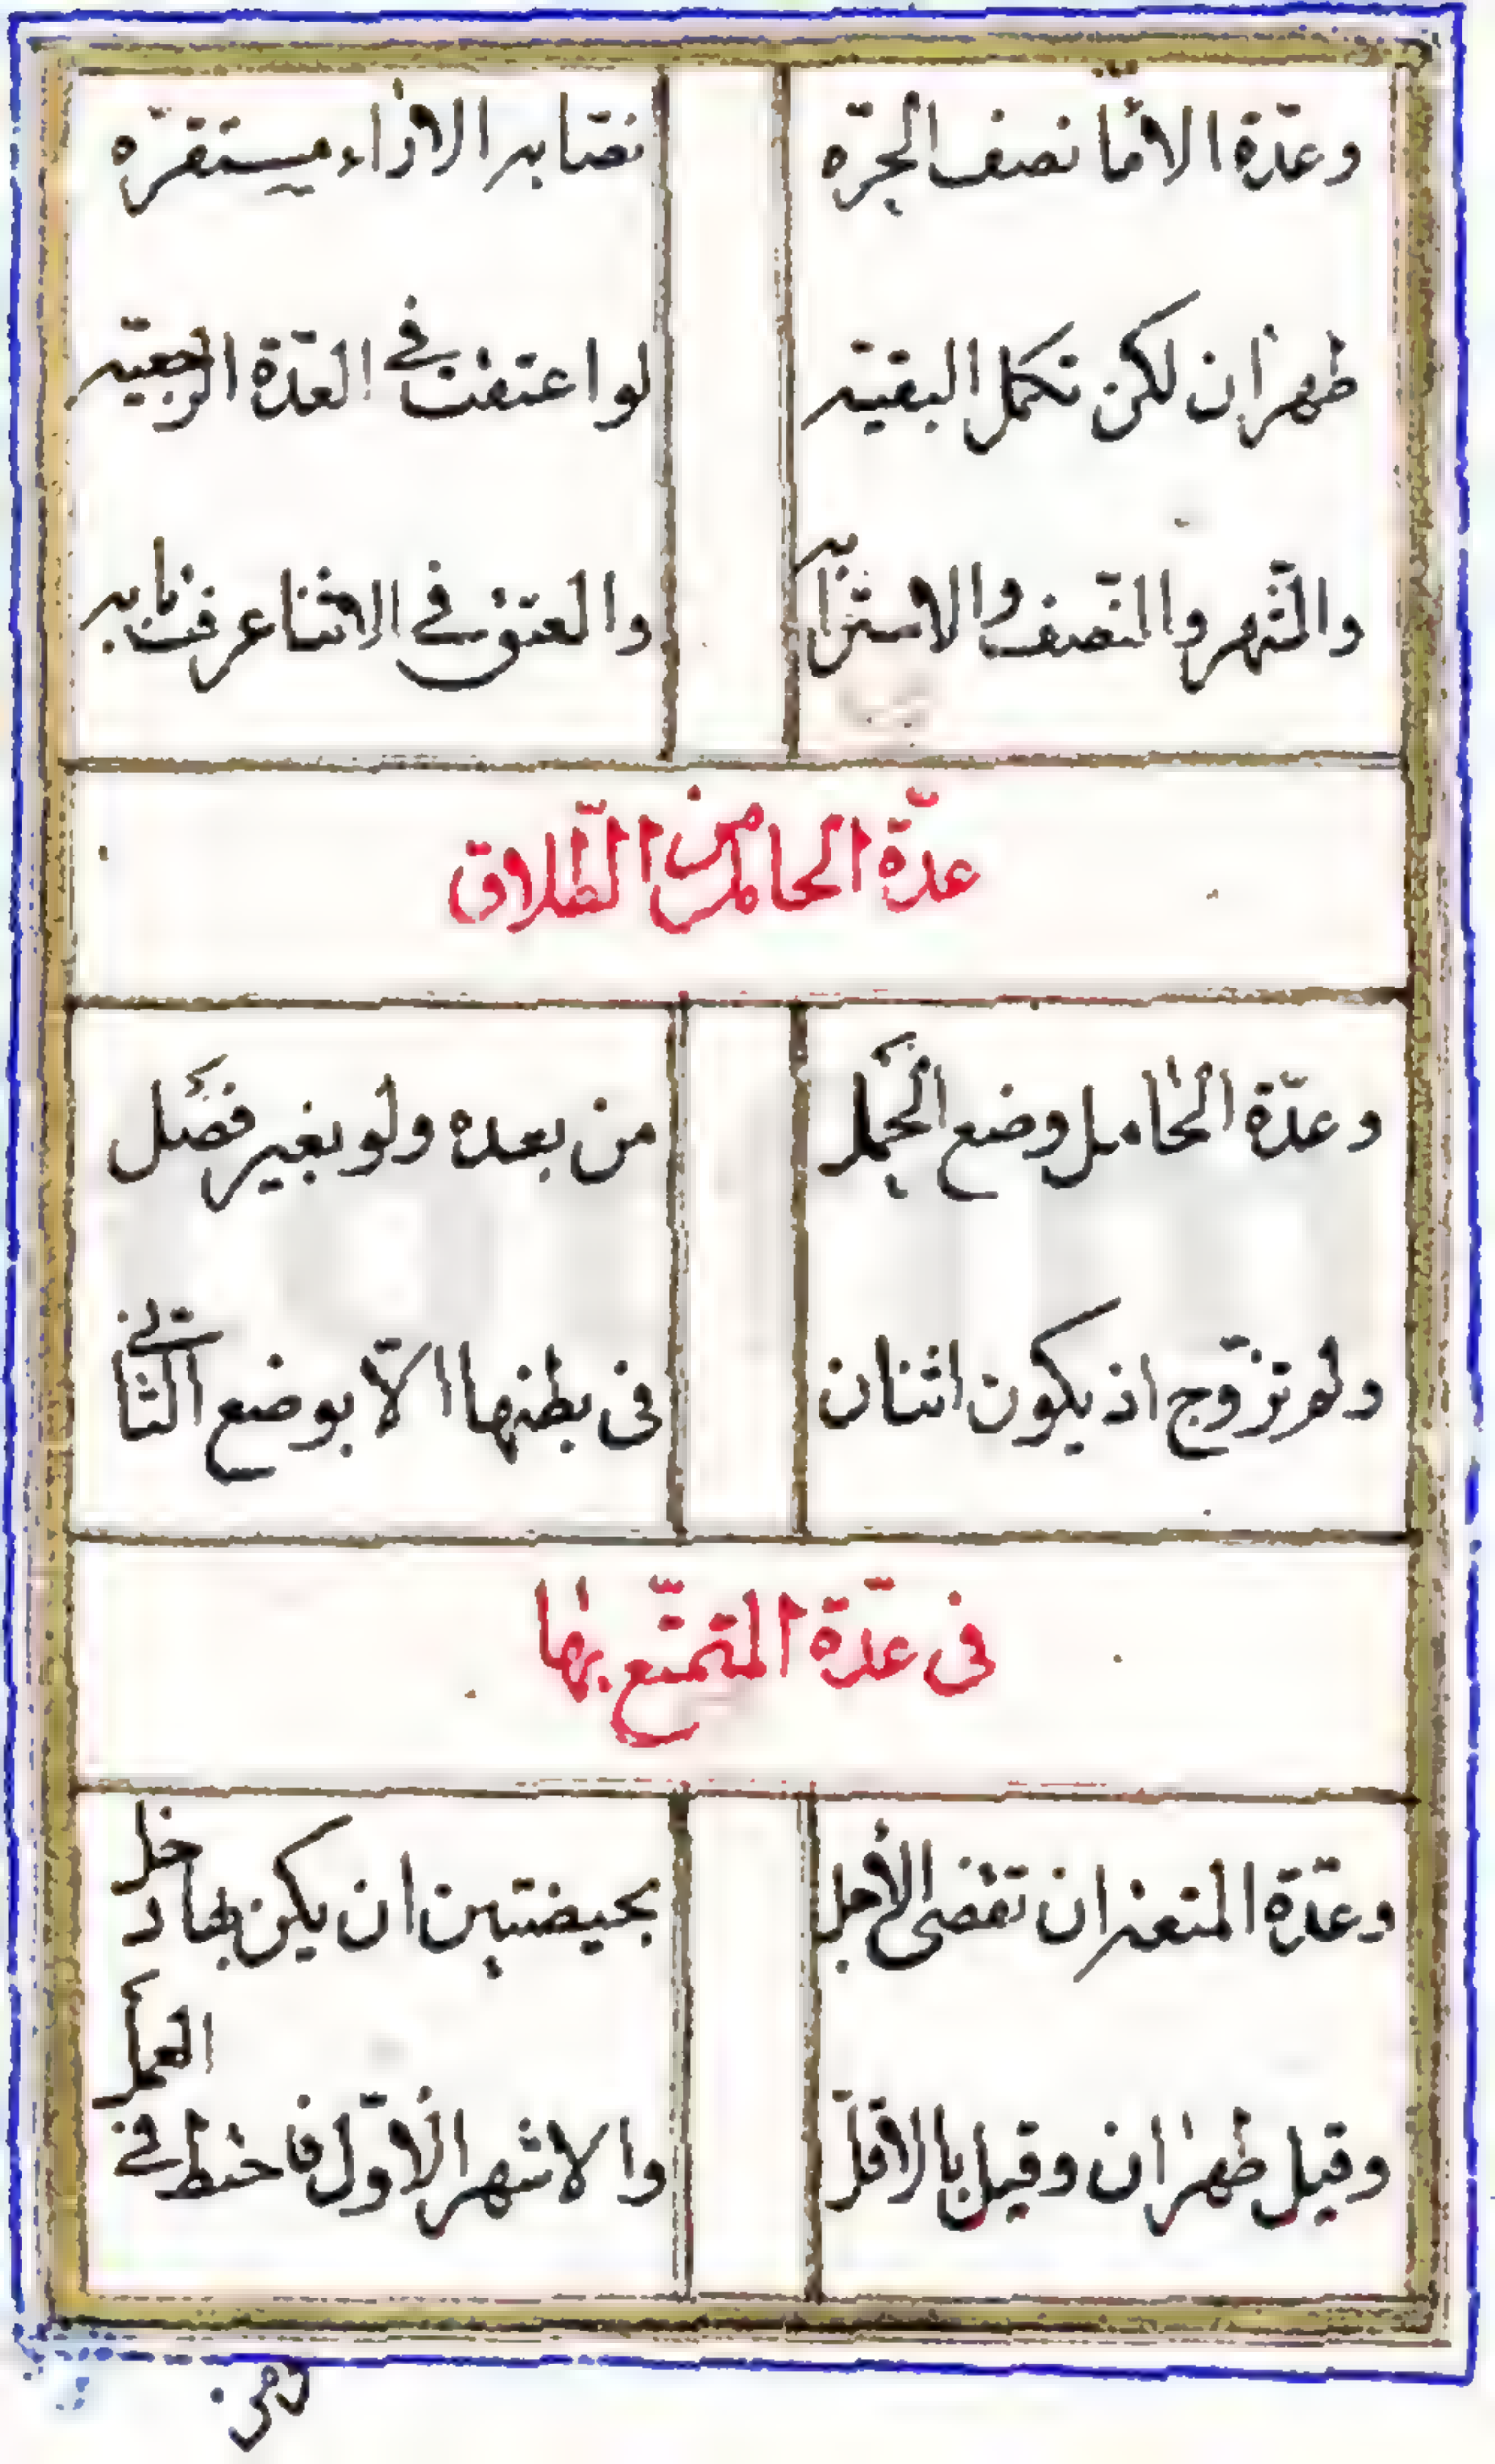 وعدّة الاما نصف الحرّه نصّا به الاراء مستقرّه
طهران لكن تكمل البقيّه لو اعتقت فى العدّة الرجعيّه
والشّهر والنّصف والاسترابه والعتق فى الاثنا عرفت بابه
عدّة الحامل من الطّلاق
وعدّة الحامل وضع الحمل من بعده ولو بغير فصل
ولم تزوّج اذ يكون اثنان فى بطنها الاّ بوضع الثّانى
فى عدّة المتمتّع بها
وعدّة المتعه ان تقضى الاجل بحيضتين ان يكن بها دخل
وقيل طهران وقيل بالاقلّ والاشهر الاوّل فاحتط فى العمل